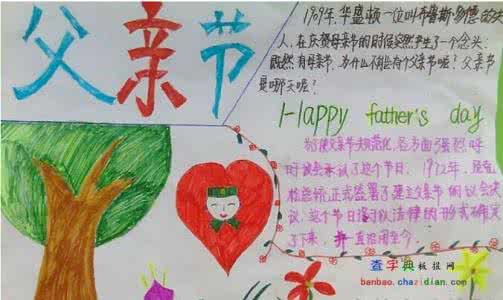 父亲节
1909年,华盛顿一位叫布鲁斯多德的
人,在庆贺母亲节的时候突然产生了一个念头:
既然有母亲节,为什么不能有个父亲节呢?父亲节
是哪天呢?
Happy father's day
为了使父亲节规范化,各方面强烈呼
议会承认了这个节日。1972年,
正式签署了建立父亲节的议会决
议。这个节日终于以法律的形式确定
了下来,并一直沿用至今。
查字典板报网
banbao.chazidian.com